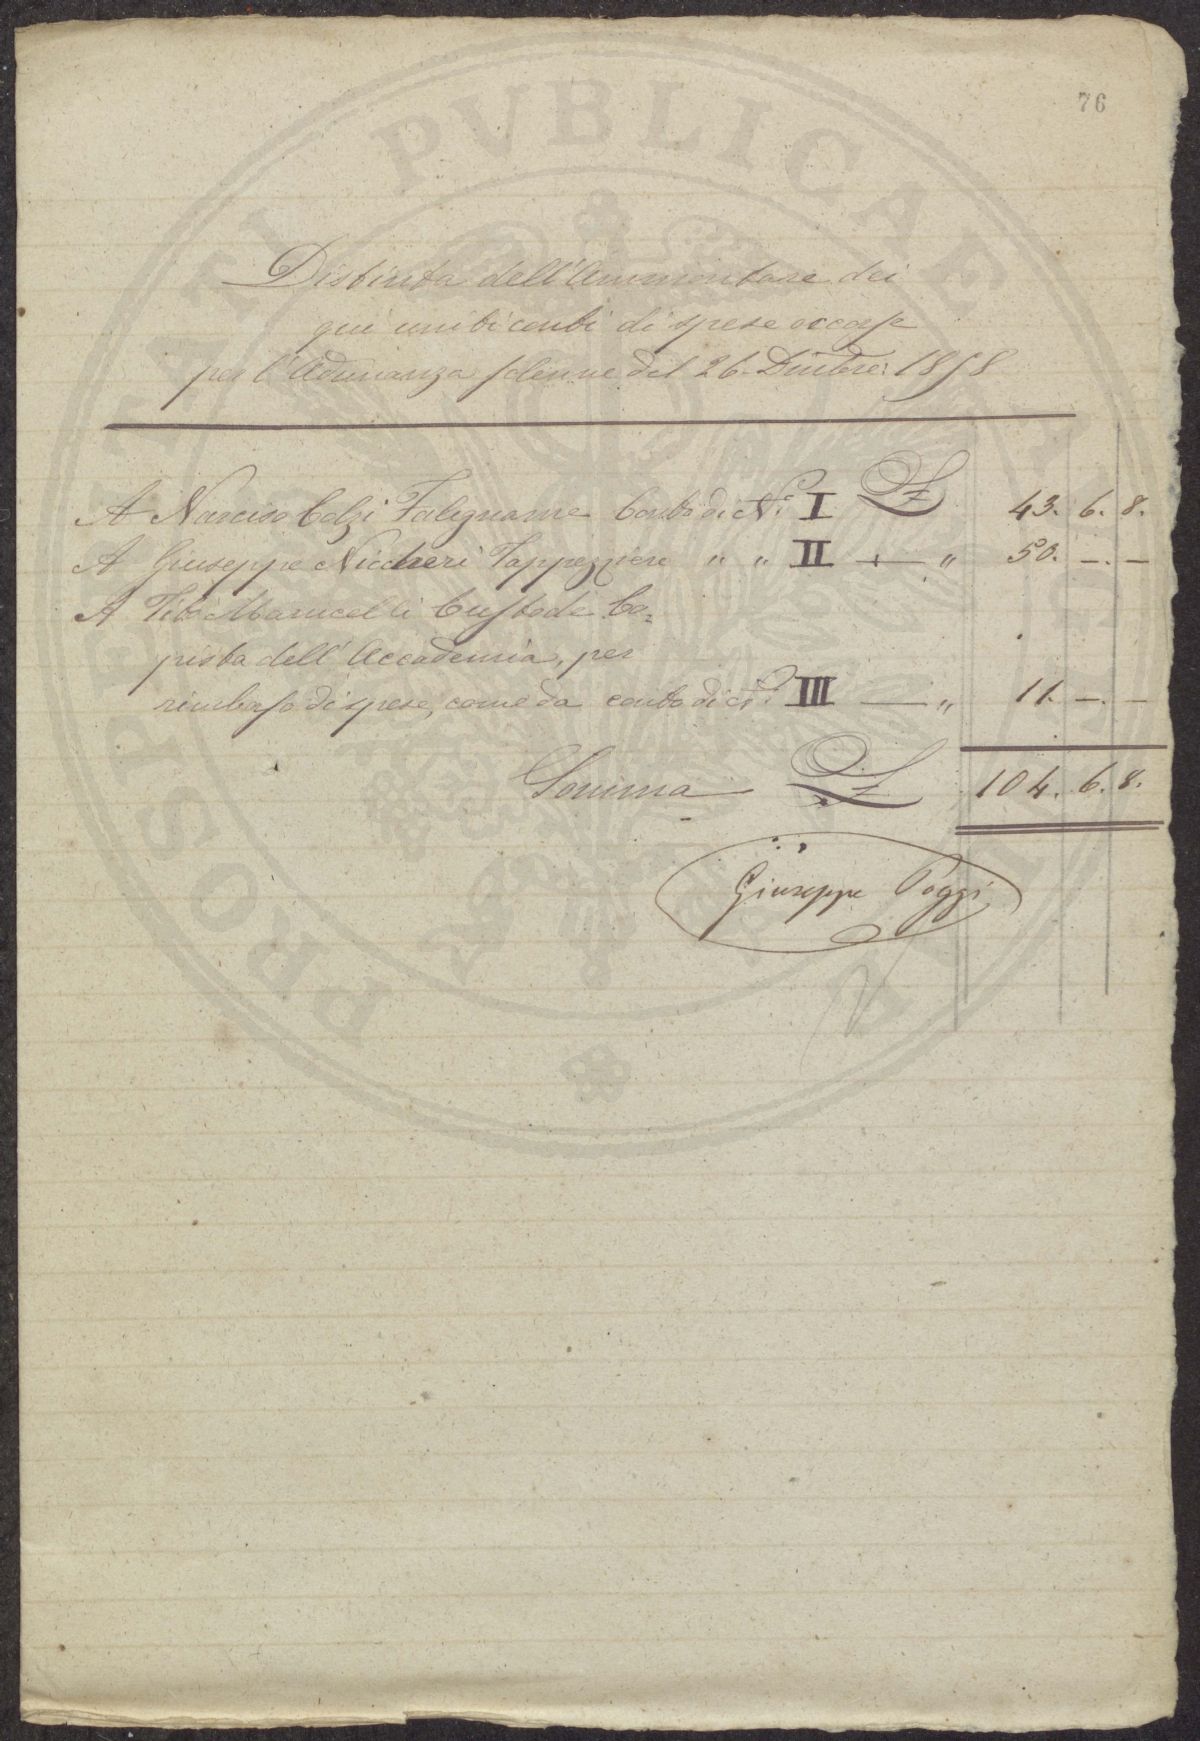 76
Distinta dell'Ammontare dei
qui uniti conti di spese occorse
per l'Adunanza solenne del 26. Dicembre 1858
A Narciso Calzi Falegname Conto di N.° I £ 43. 6. 8.
A Giuseppe Niccheri Tappezziere " " II — " 50. —. —
A Tito Marucelli Custode Co=
pista dell'Accademia, per
rimborso di spese, come da conto di N.° III — " 11. —. —
Somma £ 104. 6. 8.
Giuseppe Poggi
PROSPERITATI PVBLICAE